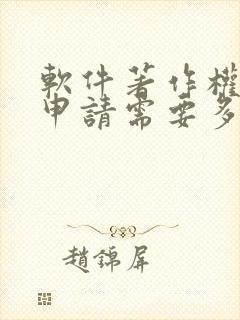 軟件著作權
申請需要多
趙錦屏